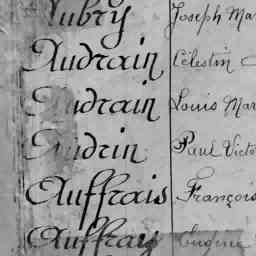 Aubry Joseph Mar
Audrain Célestin
Audrain Louis Mar
Audrin Paul Victo
Auffrais François
Auffray Eugène